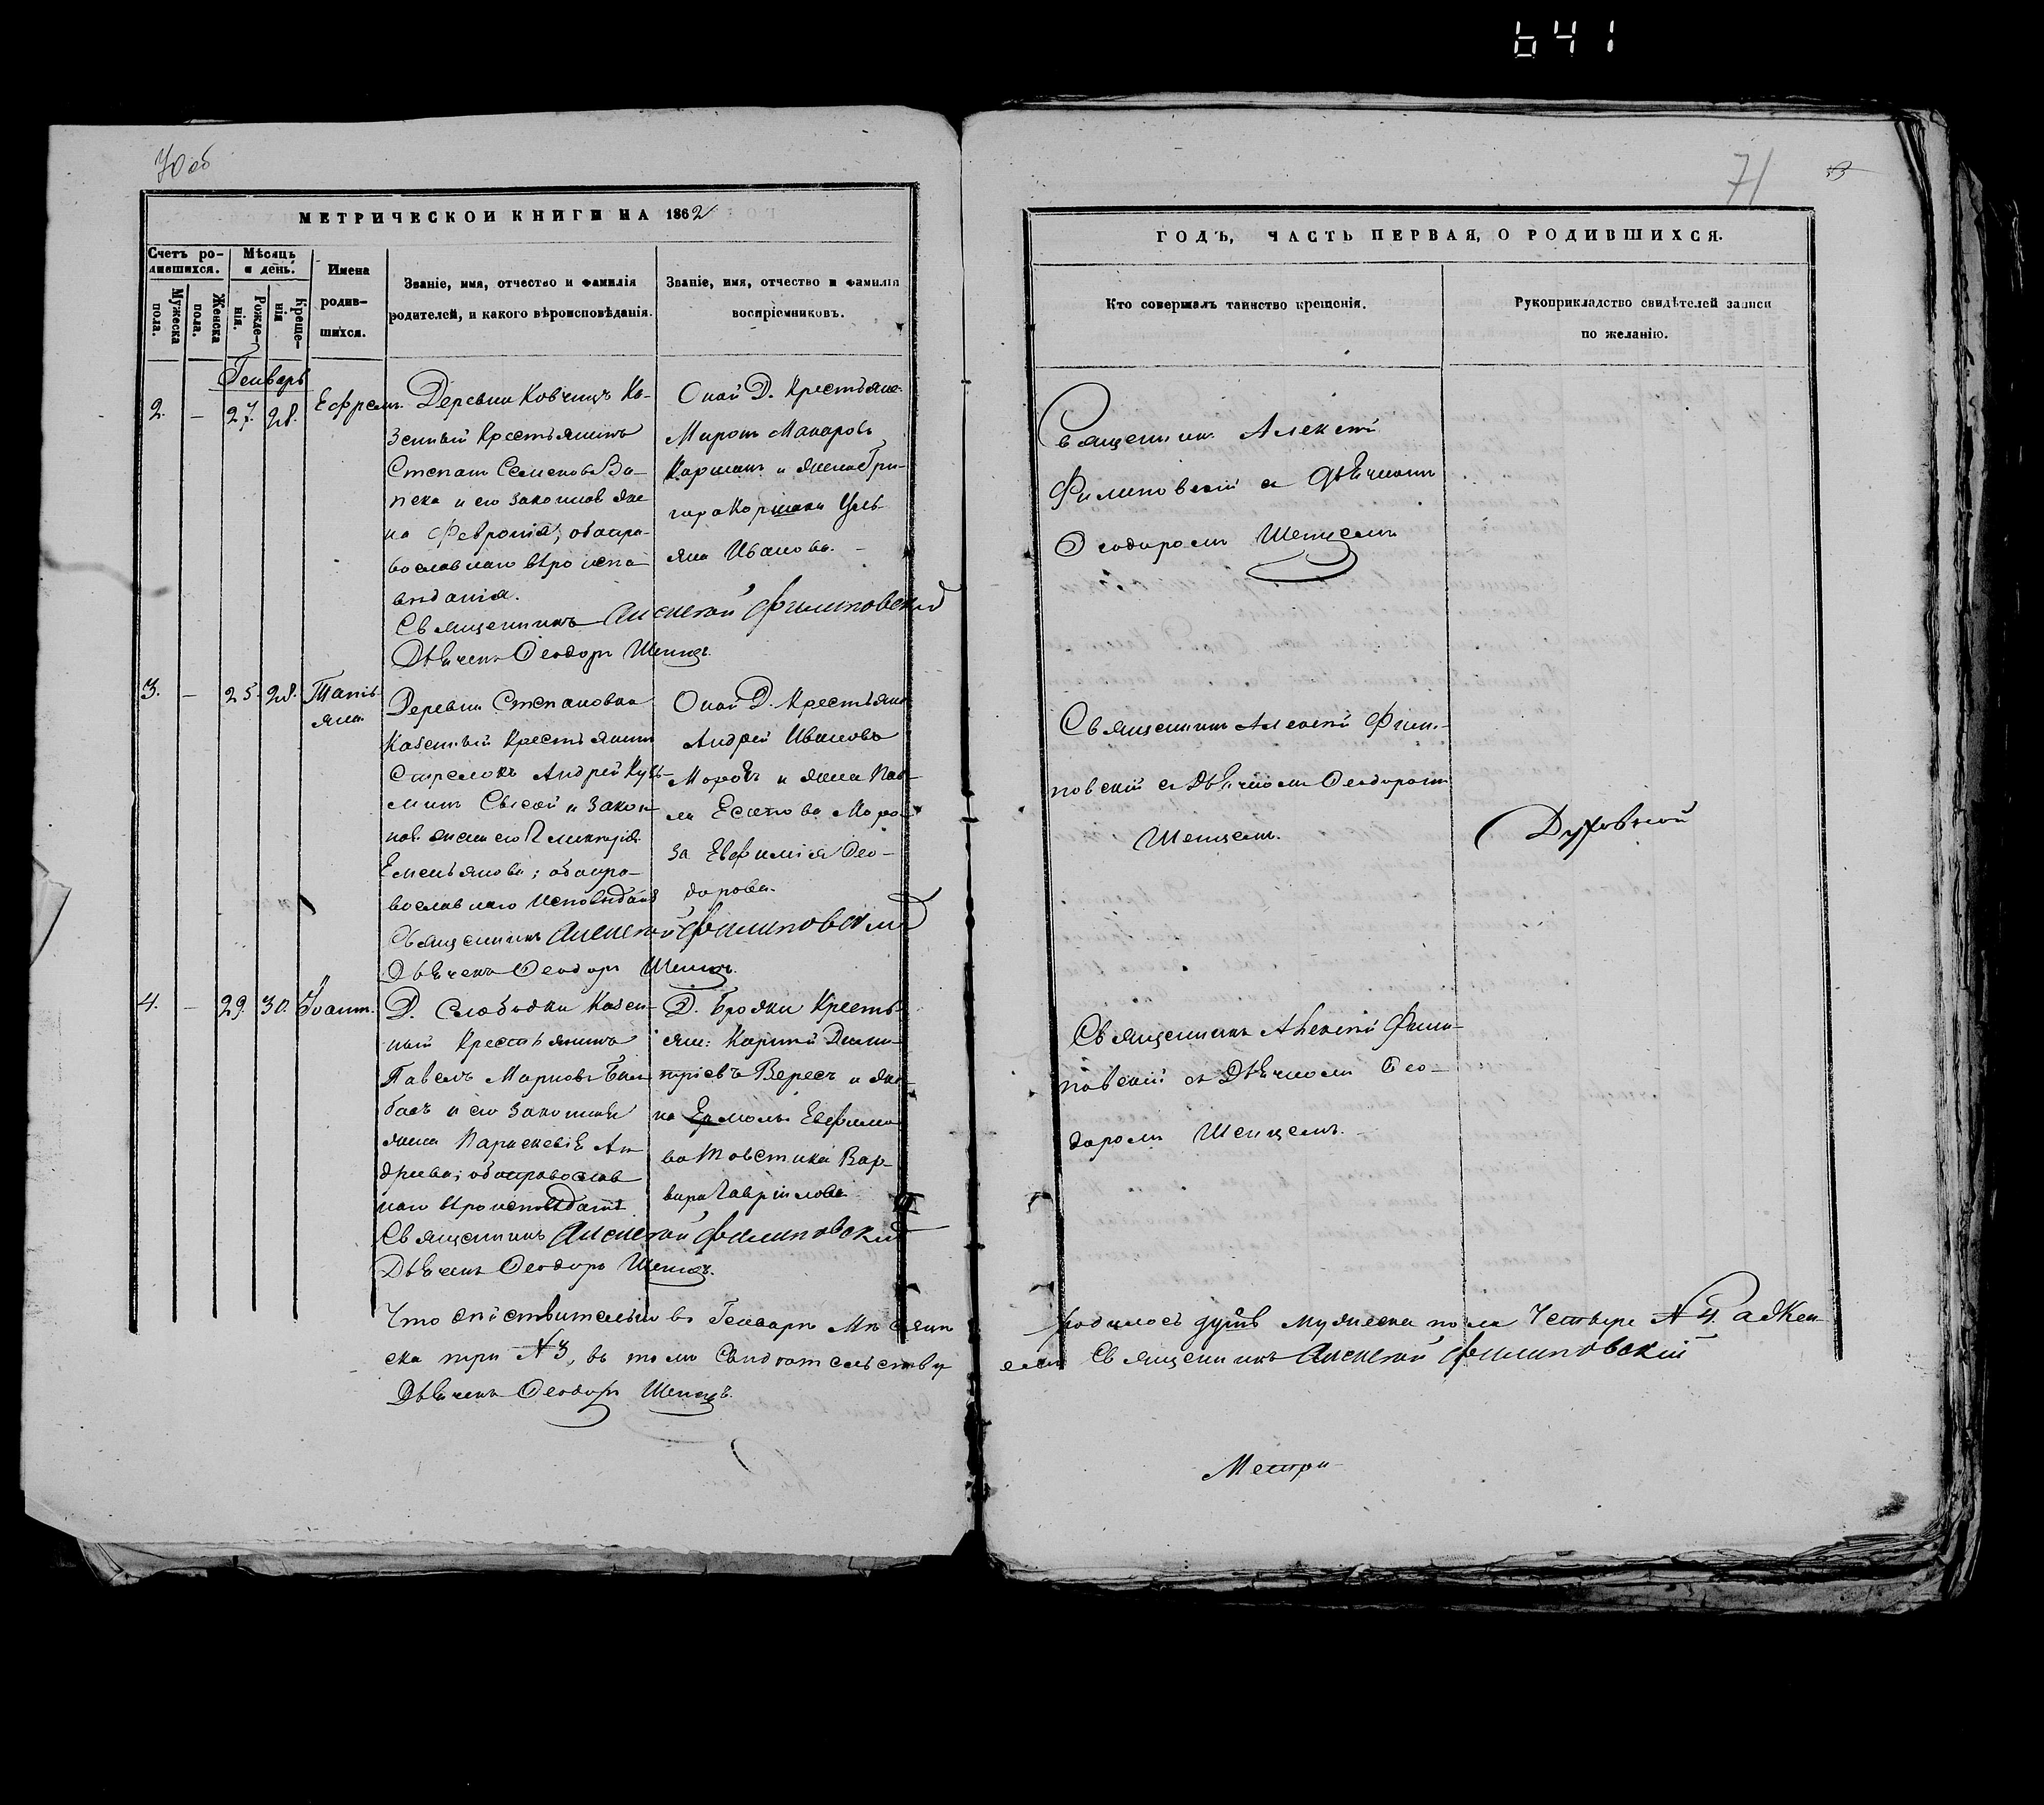 641
70 об
МЕТРИЧЕСКОЙ КНИГИ НА 1862
Счетъ ро-
дившихся.
Мужеска
пола.
Женска
пола.
Мѣсяцъ
и день.
Рожде-
нія.
Креще-
нія
Имена
родив-
шихся.
Званіе, имя, отчество и фамилія
родителей, и какого вѣроисповѣданія.
Званіе, имя, отчество и фамилія
воспріемниковъ.
Генварь
2. — 27. 28. Ефремъ.
Деревни Ковчицъ Ка-
зенный Крестьянинъ
Степанъ Семеновъ
и его законная же
на Февронія; оба пра-
вославнаго вѣроиспо
вѣданія.
Священникъ Алексѣй Филиповскій
Дьячекъ Ѳеодоръ Шепецъ.
Оной Д. Крестьяне
Миронъ Макаровъ
Коршакъ и жена Гри-
гора Коршака Уль-
яна Иванова. —
3. — 25. 28. Татiь-
яна
Деревни Степановки
Казенный Крестьянинъ
Стрелокъ Андрей
и закон
нов. жена его
Емельянова; оба пра-
вославнаго исповѣданія
Священникъ Алексѣй Филиповскій
Дьячекъ Ѳеодоръ Шепецъ.
Оной Д. Крестьяне
Андрей Ивановъ
Морозъ и жена Пав-
ла Моро-
за Евфимія Ѳео-
дорова.
4. — 29. 30. Іоаннъ.
Д. Слободки Казен-
ный Крестьянинъ
Павелъ Марковъ
и его законная
жена Параскевія Ан
дреева; оба православ
наго вѣроисповѣданія.
Священникъ Алексѣй Филиповскій
Дьячекъ Ѳеодоръ Шепецъ.
Д. Бродки Кресть-
яне: Карпій Дими-
тріевъ Вересъ и же-
на Ермолы Евфимо
ва Товстика Вар-
вара Гавріилова
Что дѣйствительно въ Генварѣ Мѣсяцѣ
ска три №3, въ томъ Свидѣтельствуемъ
Дьячекъ Ѳеодоръ Шепецъ.
71
ГОДЪ, ЧАСТЬ ПЕРВАЯ, О РОДИВШИХСЯ.
Кто совершалъ таинство крещенія.
Рукоприкладство свидѣтелей записи
по желанію.
Священникъ Алексѣй
Филиповскій съ Дьячкомъ
Ѳеодоромъ Шепцемъ
Священникъ Алексѣй Фили-
повскій съ Дьячкомъ Ѳеодоромъ
Шепцемъ.
Духовной
Священникъ Алексѣй Фили-
повскій съ Дьячкомъ Ѳео-
доромъ Шепцемъ. —
родилось душъ мужеска пола Четыре №4. а Жен
Священникъ Алексѣй Филиповскій
Метри-